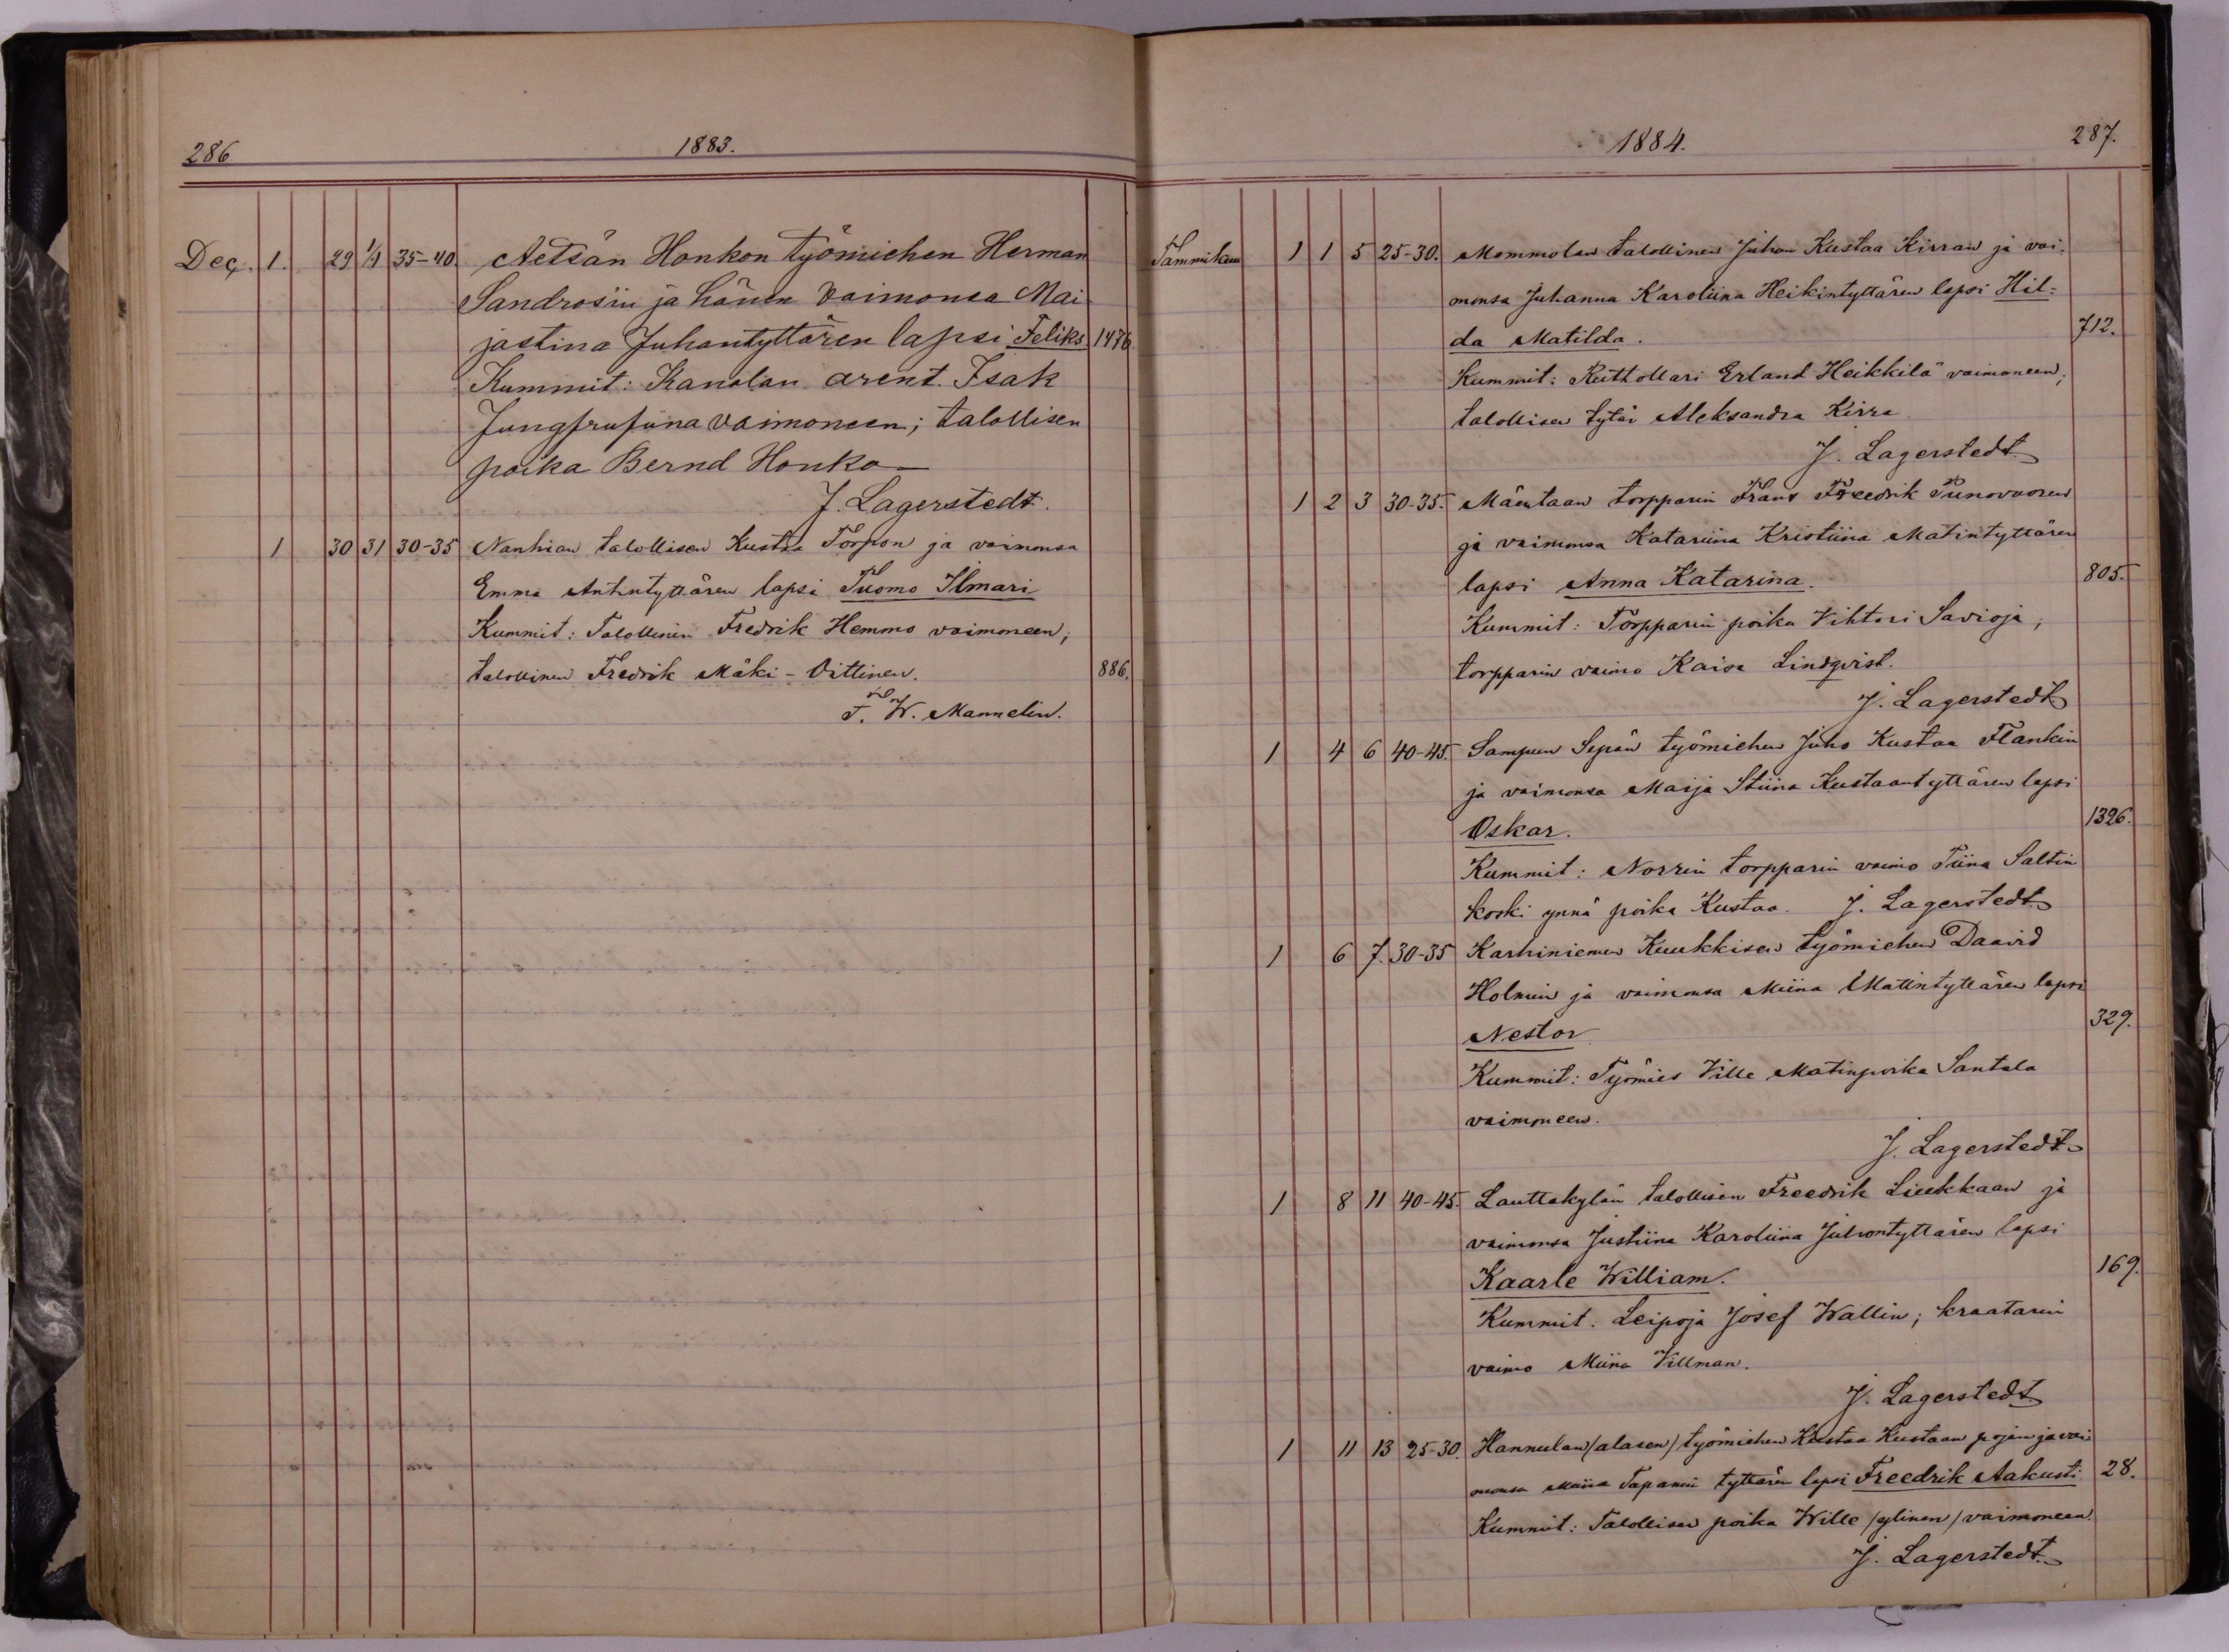 286 1883.
Dec. 1. 29 1/1 35-40. Aetsän Honkon työmiehen Herman
Sandrosin ja hänen vaimonsa Mai
jastina Juhantyttären lapsi Feliks. 1476.
Kummit: Kanolan arent. Isak
Jungfrufuna vaimoneen; talollisen
poika Bernd Honko
J. Lagerstedt.
1 30 31 30-35 Nanhian talollisen Kustaa Torpon ja vaimonsa
Emma Antintyttären lapsi Tuomo Ilmari
Kummit: Talollinen Fredrik Hemmo vaimoneen,
talollinen Fredrik Mäki-Vittinen. 886.
F. W. Mannelin.
1884. 287.
Tammikuu 1 1 5 25-30. Mommolan talollinen Juhan Kustaa Kirran ja vai-
monsa Juhanna Karoliina Heikintyttären lapsi Hil=
da Matilda. 712.
Kummit: Ruttollari Erland Heikkilä vaimoneen;
talollisen tytär Aleksandra Kirra
J. Lagerstedt
1 2 3 30-35. Mäentaan torpparin Frans Freedrik Punovuoren
ja vaimonsa Katariina Kristiina Matintyttären
lapsi Anna Katarina. 805.
Kummit: Torpparin poika Vihtori Savioja,
torpparin vaimo Kaisa Lindqvist.
J. Lagerstedt
1 4 6 40-45. Sampun Sepän työmiehen Juho Kustaa Flankin
ja vaimonsa Maija Stiina Kustaantyttären lapsi
Oskar. 1326.
Kummit: Norrin torpparin vaimo Tiina Saltin
koski ynnä poika Kustaa. J. Lagerstedt
1 6 7. 30-35 Karhiniemen Kuukkisen työmiehen Daavid
Holmin ja vaimonsa Miina Matintyttären lapsi
Nestor 329.
Kummit: Työmies Ville Matinpoika Santala
vaimoneen.
J. Lagerstedt
1 8 11 40-45. Lauttakylän talollisen Freedrik Liukkaan ja
vaimonsa Justiina Karoliina Juhontyttären lapsi
Kaarle William. 169.
Kummit. Leipoja Josef Wallin; kraatarin
vaimo Miina Villman.
J. Lagerstedt
1 11 13 25-30. Hannulan /alasen/ työmiehen Kustaa Kustaan pojan ja vai
monsa Miina Tapanin tyttären lapsi Freedrik Aakusti 28.
Kummit: Talollisen poika Wille /ylinen/ vaimoneen.
J. Lagerstedt